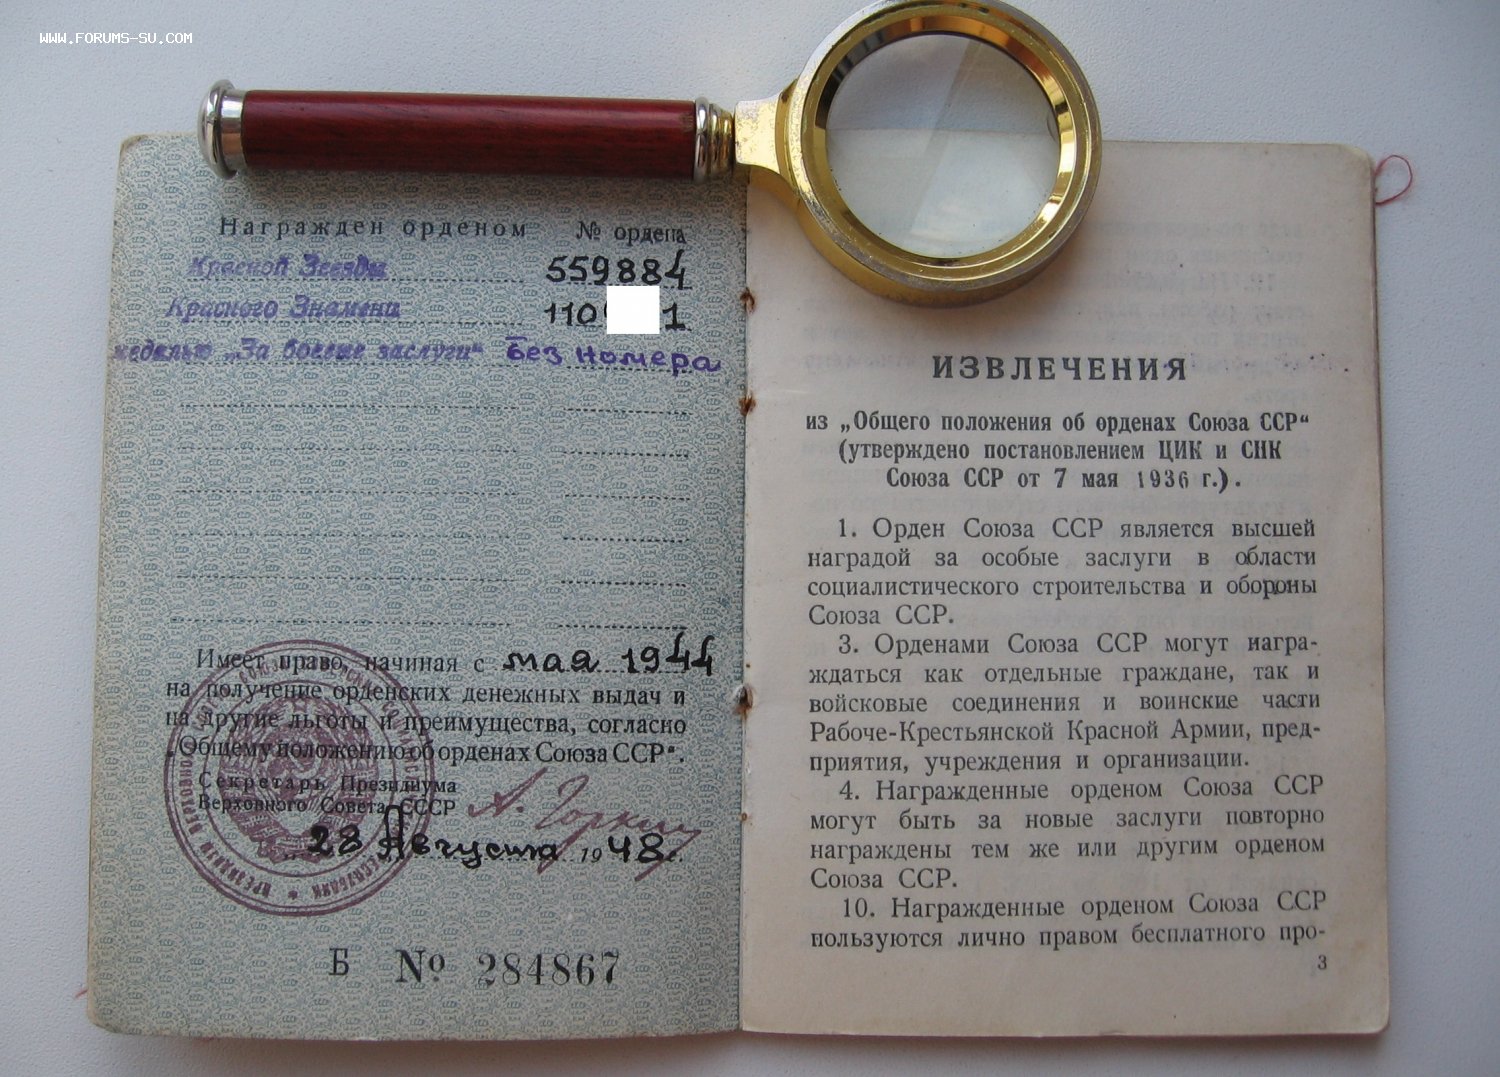 WWW.FORUMS-SU.COM
Награжден орденом № ордена
Красной Звезды 559884
Красного Знамени 110 1
медалью „За боевые заслуги“ Без номера
Имеет право, начиная с мая 1944
на получение орденских денежных выдач и
на другие льготы и преимущества, согласно
„Общему положению об орденах Союза ССР“.
Секретарь Президиума
Верховного Совета СССР А. Горкин
„28 Августа 1948 г.
Б № 284867
ИЗВЛЕЧЕНИЯ
из „Общего положения об орденах Союза ССР“
(утверждено постановлением ЦИК и СНК
Союза ССР от 7 мая 1936 г.).
1. Орден Союза ССР является высшей
наградой за особые заслуги в области
социалистического строительства и обороны
Союза ССР.
3. Орденами Союза ССР могут награ-
ждаться как отдельные граждане, так и
войсковые соединения и воинские части
Рабоче-Крестьянской Красной Армии, пред-
приятия, учреждения и организации.
4. Награжденные орденом Союза ССР
могут быть за новые заслуги повторно
награждены тем же или другим орденом
Союза ССР.
10. Награжденные орденом Союза ССР
пользуются лично правом бесплатного про-
3